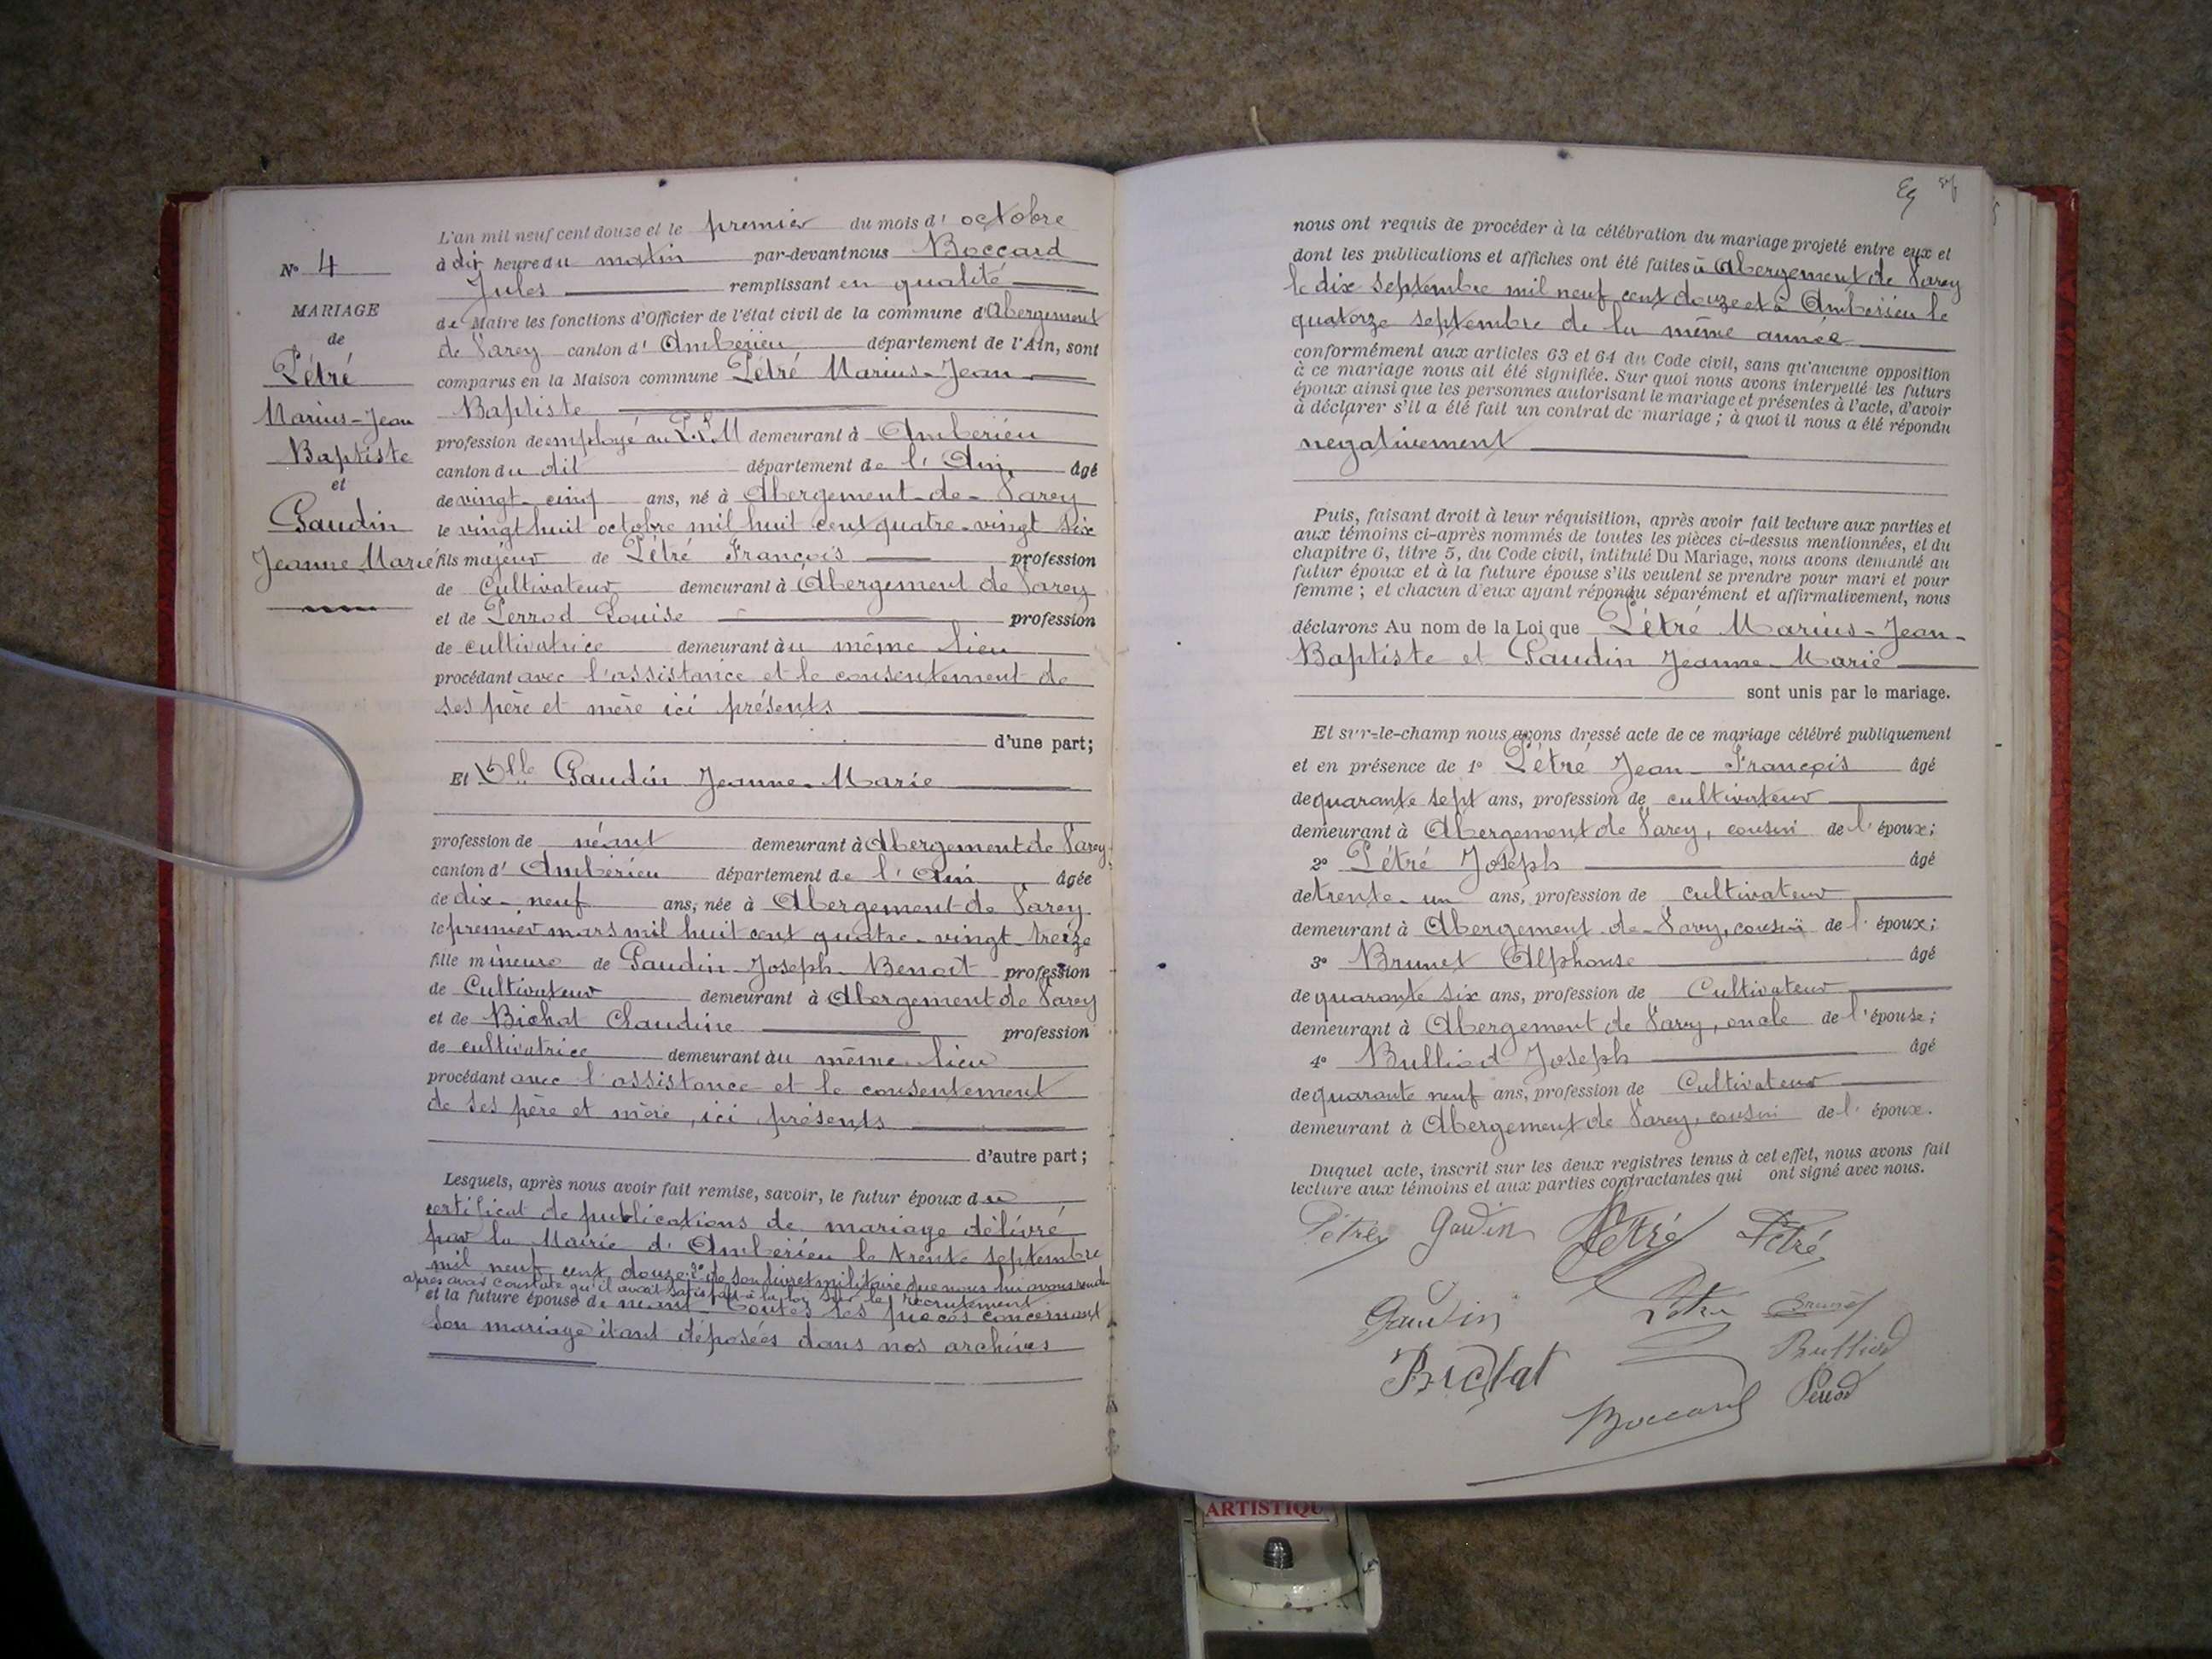 N° 4
MARIAGE
de
Pétré
Marius-Jean
Baptiste
et
Gaudin
Jeanne Marie
L'an mil neuf cent douze et le premier du mois d' octobre
à dix heure du matin par-devant nous Boccard
Jules remplissant en qualité
de Maire les fonctions d'Officier de l'état civil de la commune d'Abergement
de Varey canton d' Ambérieu département de l'Ain, sont
comparus en la Maison commune Pétré Marius-Jean
Baptiste
profession de employé au P.L.M demeurant à Ambérieu
canton du dit département de l' Ain, âgé
de vingt-cinq ans, né à Abergement-de-Varey
le vingt huit octobre mil huit cent quatre-vingt six
fils majeur de Pétré François profession
de Cultivateur demeurant à Abergement de Varey
et de Perrod Louise profession
de cultivatrice demeurant au même lieu
procédant avec l'assistance et le consentement de
ses père et mère ici présents
d'une part;
Et Dlle Gaudin Jeanne-Marie
profession de néant demeurant à Abergement de Varey
canton d' Ambérieu département de l' Ain âgée
de dix-neuf ans, née à Abergement de Varey
le premier mars mil huit cent quatre-vingt-treize
fille mineure de Gaudin Joseph Benoît profession
de Cultivateur demeurant à Abergement de Varey
et de Bichat Claudine profession
de cultivatrice demeurant au même lieu
procédant avec l'assistance et le consentement
de ses père et mère, ici présents
d'autre part;
Lesquels, après nous avoir fait remise, savoir, le futur époux du
certificat de publications de mariage délivré
par la Mairie d' Ambérieu le trente septembre
mil neuf cent douze 2° de son livret militaire que nous lui avons rendu
après avoir constaté qu'il avait satisfait à la loi sur le recrutement
et la future épouse de néant toutes les pièces concernant
son mariage étant déposées dans nos archives
nous ont requis de procéder à la célébration du mariage projeté entre eux et
dont les publications et affiches ont été faites à Abergement de Varey
le dix septembre mil neuf cent douze et à Ambérieu le
quatorze septembre de la même année
conformément aux articles 63 et 64 du Code civil, sans qu'aucune opposition
à ce mariage nous ait été signifiée. Sur quoi nous avons interpellé les futurs
époux ainsi que les personnes autorisant le mariage et présentes à l'acte, d'avoir
à déclarer s'il a été fait un contrat de mariage; à quoi il nous a été répondu
negativement
Puis, faisant droit à leur réquisition, après avoir fait lecture aux parties et
aux témoins ci-après nommés de toutes les pièces ci-dessus mentionnées, et du
chapitre 6, titre 5, du Code civil, intitulé Du Mariage, nous avons demandé au
futur époux et à la future épouse s'ils veulent se prendre pour mari et pour
femme; et chacun d'eux ayant répondu séparément et affirmativement, nous
déclarons Au nom de la Loi que Pétré Marius-Jean-
Baptiste et Gaudin Jeanne-Marie
sont unis par le mariage.
Et sur-le-champ nous avons dressé acte de ce mariage célébré publiquement
et en présence de 1° Pétré Jean-François âgé
de quarante sept ans, profession de cultivateur
demeurant à Abergement de Varey, cousin de l' époux;
2° Pétré Joseph âgé
de trente-un ans, profession de cultivateur
demeurant à Abergement-de-Varey, cousin de l' époux;
3° Brunet Alphonse âgé
de quarante six ans, profession de Cultivateur
demeurant à Abergement de Varey, oncle de l'épouse;
4° Bulliod Joseph âgé
de quarante neuf ans, profession de Cultivateur
demeurant à Abergement de Varey, cousin de l' époux.
Duquel acte, inscrit sur les deux registres tenus à cet effet, nous avons fait
lecture aux témoins et aux parties contractantes qui ont signé avec nous.
Pétré Gaudin Pétré Pétré
Gaudin Pétré Brunet
Bichat Bulliod
Boccard Perrod
ARTISTIQU